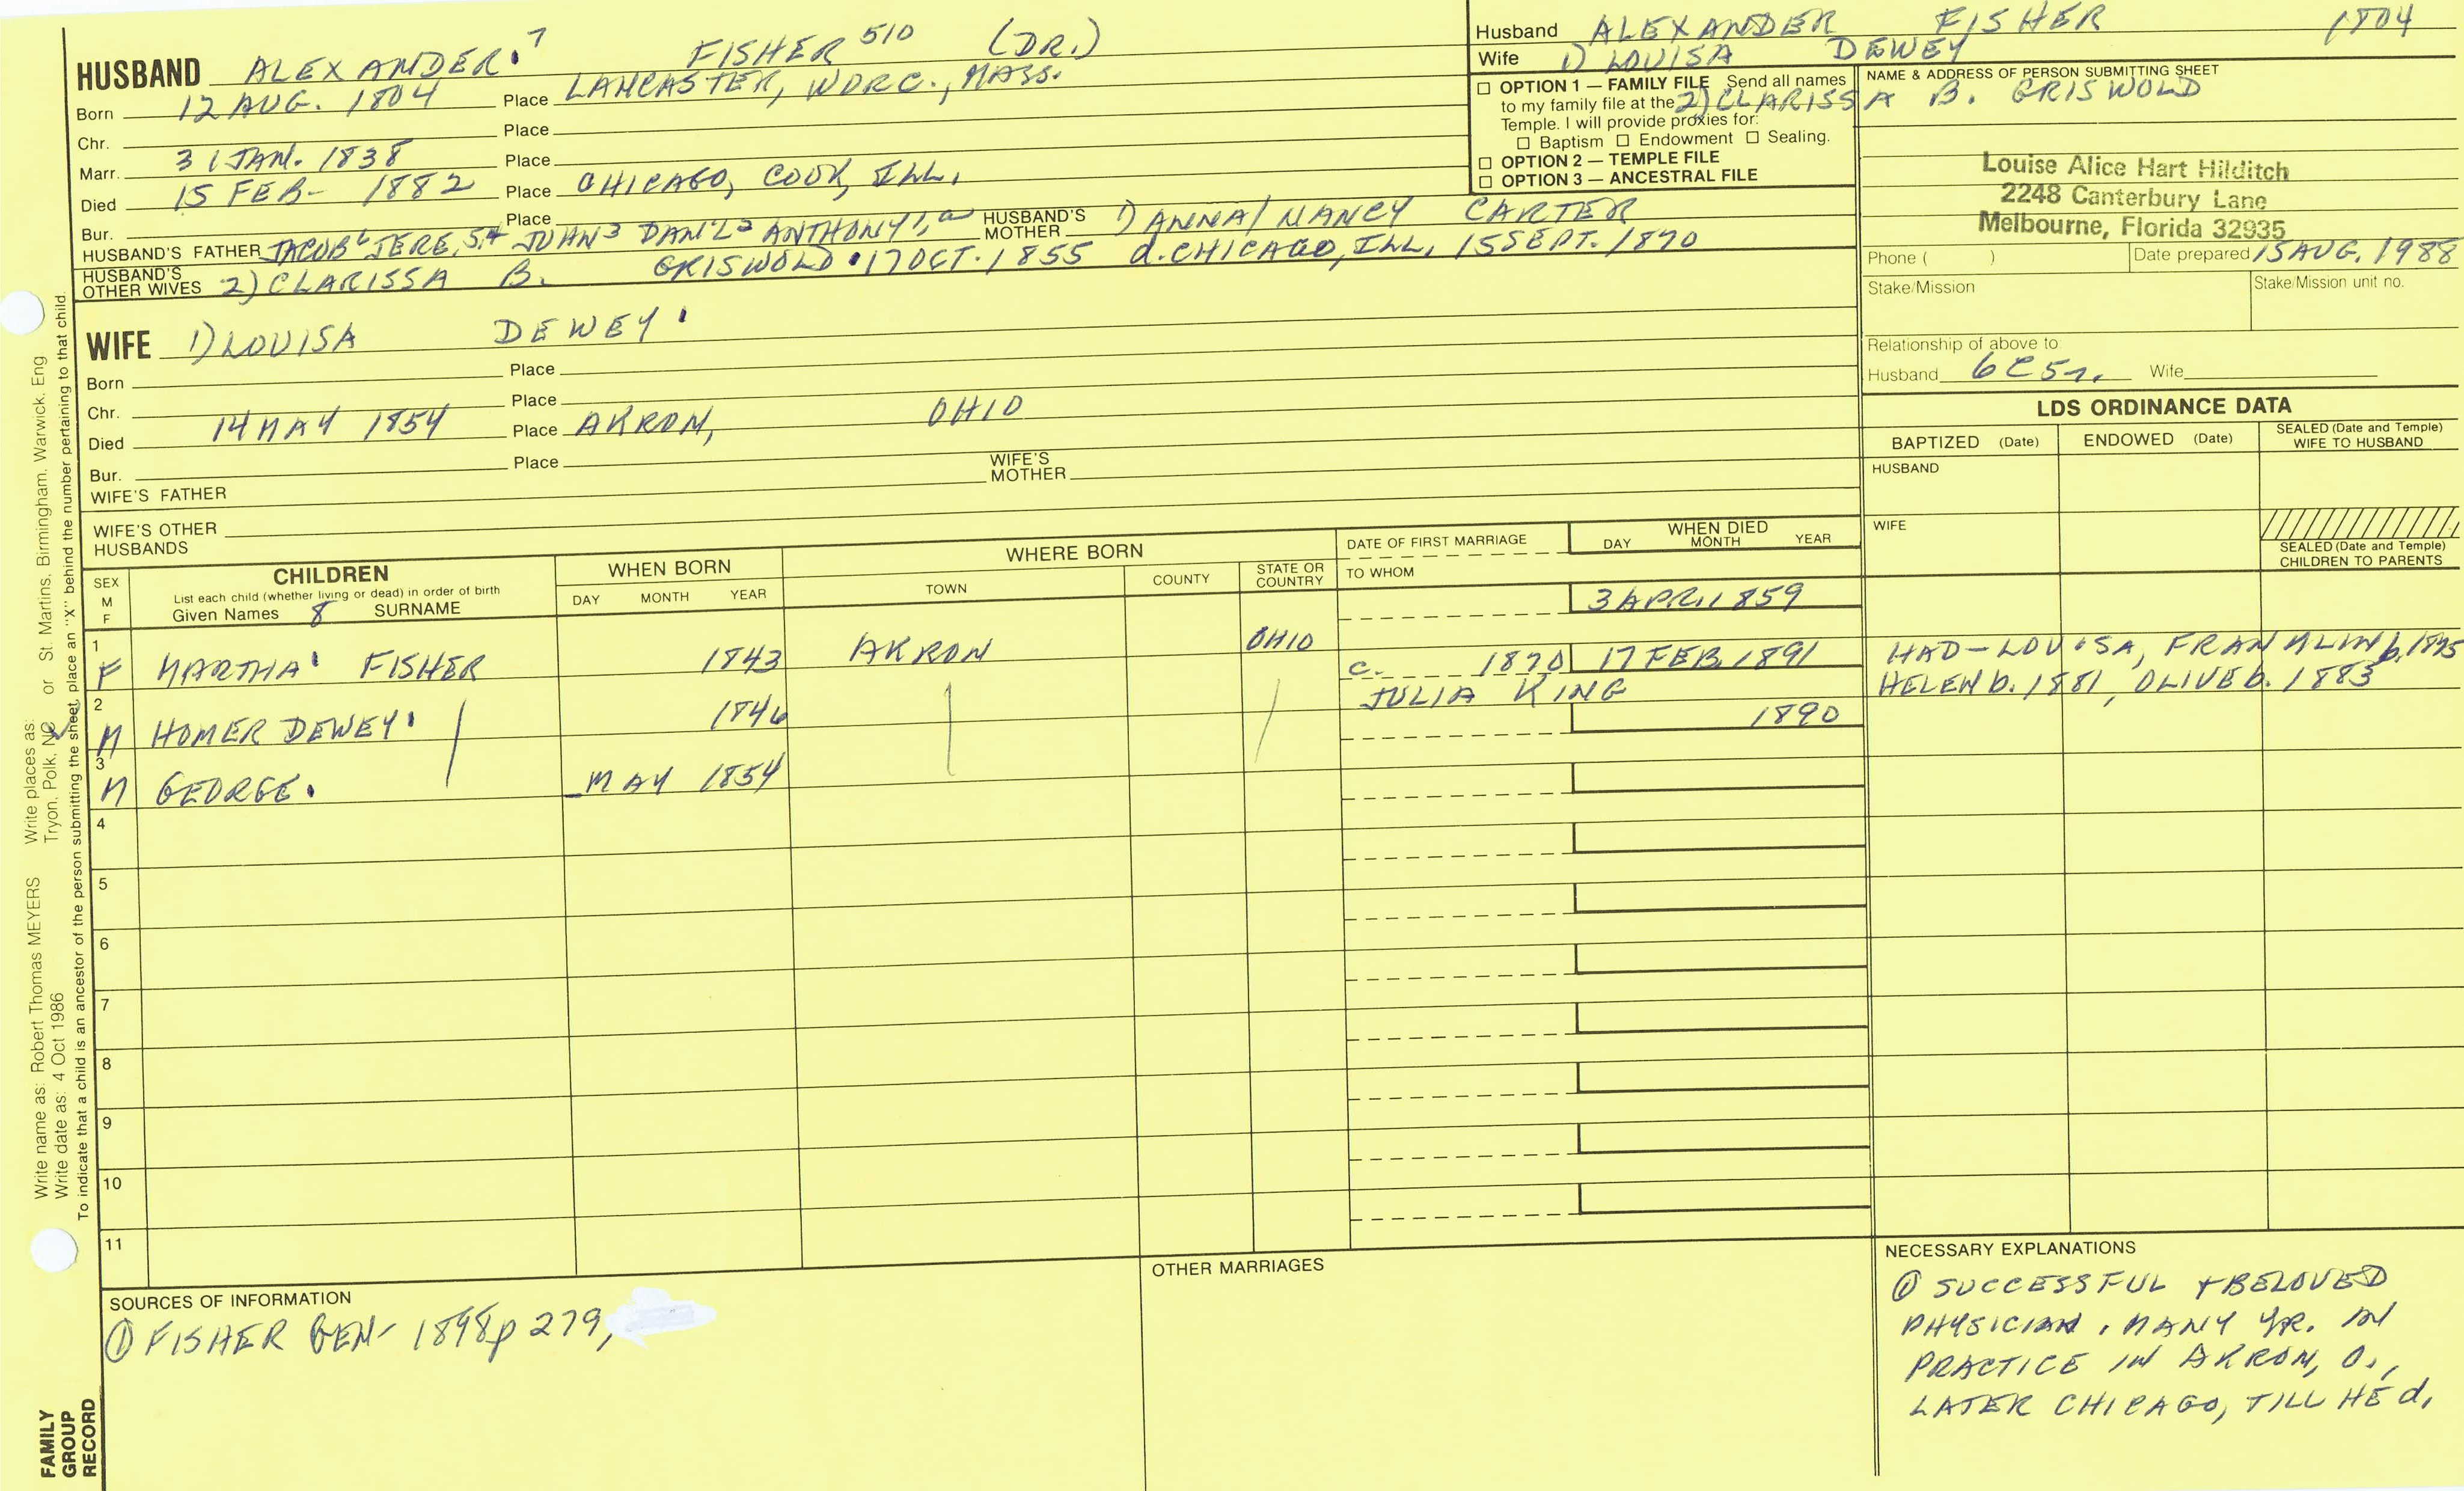 HUSBAND ALEXANDER 7 FISHER 510 (DR.)
Born 12 AUG. 1804 Place LANCASTER, WORC., MASS.
Chr. Place
Marr. 31 JAN. 1838 Place
Died 15 FEB- 1882 Place CHICAGO, COOK, ILL.
Bur. Place
HUSBAND'S FATHER JACOB6 JERE,5,4 JOHN3 DAN'L2 ANTHONY1, a HUSBAND'S MOTHER 1) ANNA/NANCY CARTER
HUSBAND'S OTHER WIVES 2) CLARISSA B. GRISWOLD • 17 OCT. 1855 d. CHICAGO, ILL, 15 SEPT. 1870
Husband ALEXANDER FISHER 1804
Wife 1) LOUISA DEWEY
2) CLARISSA B. GRISWOLD
☐ OPTION 1 — FAMILY FILE Send all names
to my family file at the
Temple. I will provide proxies for:
☐ Baptism ☐ Endowment ☐ Sealing.
☐ OPTION 2 — TEMPLE FILE
☐ OPTION 3 — ANCESTRAL FILE
NAME & ADDRESS OF PERSON SUBMITTING SHEET
Louise Alice Hart Hilditch
2248 Canterbury Lane
Melbourne, Florida 32935
Phone ( ) Date prepared 15 AUG. 1988
Stake/Mission Stake/Mission unit no.
Relationship of above to:
Husband 6C5r. Wife
WIFE 1) LOUISA DEWEY
Born Place
Chr. Place
Died 14 MAY 1854 Place AKRON, OHIO
Bur. Place
WIFE'S FATHER WIFE'S MOTHER
WIFE'S OTHER HUSBANDS
LDS ORDINANCE DATA
BAPTIZED (Date) ENDOWED (Date) SEALED (Date and Temple) WIFE TO HUSBAND
HUSBAND
WIFE
SEALED (Date and Temple) CHILDREN TO PARENTS
SEX M F
CHILDREN
List each child (whether living or dead) in order of birth
Given Names 8 SURNAME
WHEN BORN
DAY MONTH YEAR
WHERE BORN
TOWN COUNTY STATE OR COUNTRY
DATE OF FIRST MARRIAGE
TO WHOM
WHEN DIED
DAY MONTH YEAR
1 F MARTHA FISHER 1843 AKRON OHIO 3 APR. 1859
2 M HOMER DEWEY 1846 c. 1870 JULIA KING 17 FEB 1891
HAD-LOUISA, FRANKLIN b. 1875
HELEN b. 1881, OLIVE b. 1883
3 M GEORGE. MAY 1854 1890
4
5
6
7
8
9
10
11
SOURCES OF INFORMATION
① FISHER GEN- 1898 p 279,
OTHER MARRIAGES
NECESSARY EXPLANATIONS
① SUCCESSFUL + BELOVED
PHYSICIAN. MANY YR. IN
PRACTICE IN AKRON, O.,
LATER CHICAGO, TILL HE d.
Write name as: Robert Thomas MEYERS Write places as:
Write date as: 4 Oct 1986 Tryon, Polk, NC or St. Martins, Birmingham, Warwick, Eng
To indicate that a child is an ancestor of the person submitting the sheet, place an "X" behind the number pertaining to that child.
FAMILY
GROUP
RECORD